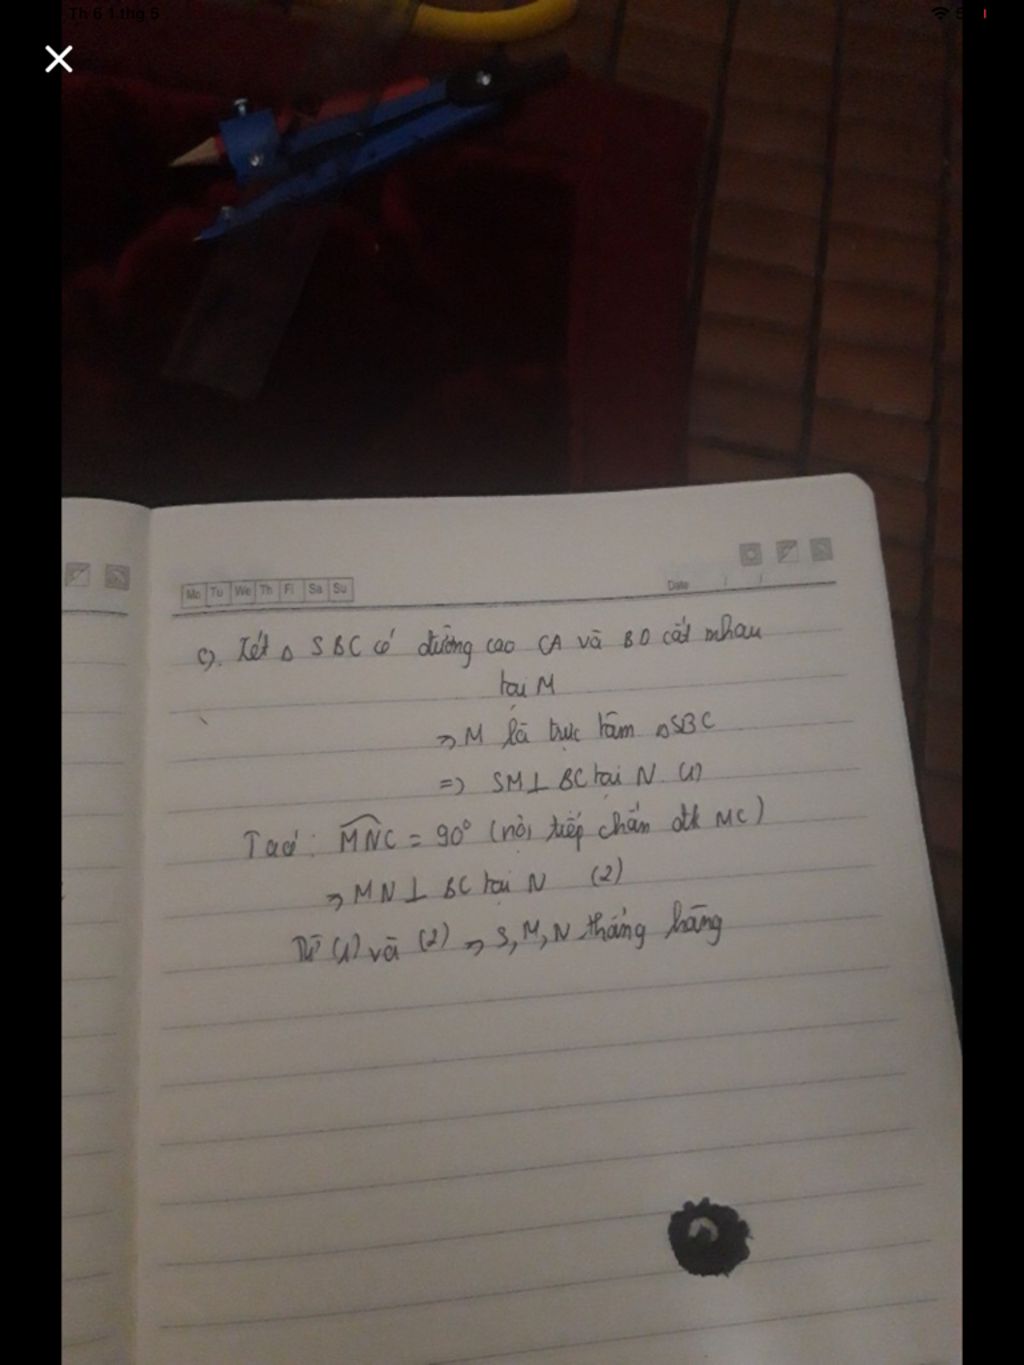 Th 6 1 thg 5
Mo Tu We Th Fr Sa Su
Date / /
c). Xét △ SBC có đường cao CA và BD cắt nhau
tại M
=> M là trực tâm △SBC
=> SM⊥ BC tại N (1)
Ta có: MNC = 90° (nội tiếp chắn đk MC)
=> MN⊥ BC tại N (2)
Từ (1) và (2) => S, M, N thẳng hàng